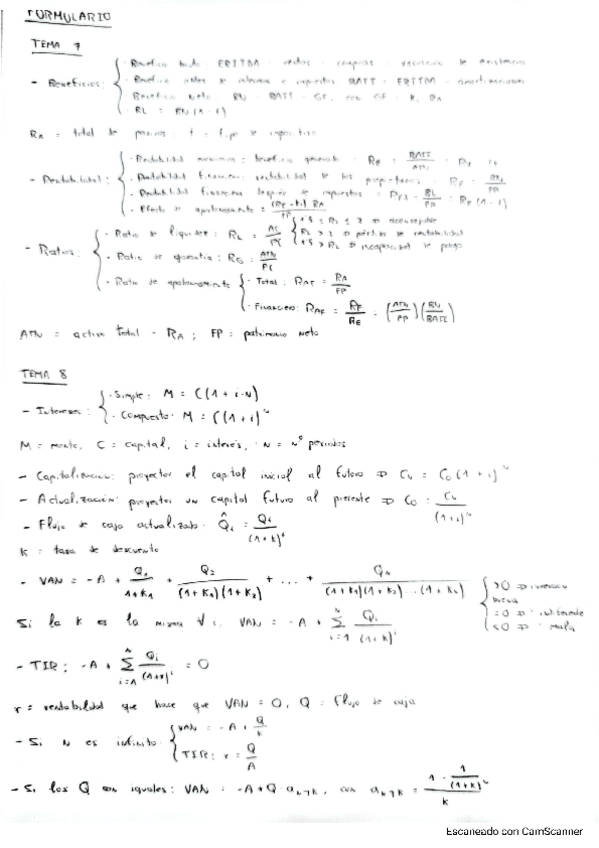 FORMULARIO
TEMA 7
- Beneficios:
Beneficio bruto EBITDA ventas - compras - de existencias
Beneficio antes de intereses e impuestos BAIT = EBITDA - amortizaciones
Beneficio Neto: BN = BAIT - GF, con GF = K. RA
RL = BN (1 - t)
RA = total de pasivo; t = tipo impositivo
- Rentabilidad:
· Rentabilidad económica: beneficio generado: RE = BAIT/ATN
· Rentabilidad financiera: rentabilidad de los propietarios: RF = BN/FP
· Rentabilidad financiera después de impuestos = RF1 = BL/FP = RF (1 - t)
· Efecto de apalancamiento =
- Ratios:
· Ratio de liquidez: RL = AC/PC { 1'5 ≤ RL ≤ 2 ⇒ aconsejable
RL > 2 ⇒ pérdida de rentabilidad
1'5 > RL ⇒ incapacidad de pago
· Ratio de garantía: RG = ATN/PC
· Ratio de apalancamiento { · Total: RAT = RA/FP
· Financiero: RAF = RF/RE = (ATN/FP)(BN/BAIT)
ATN = activo total - RA ; FP = patrimonio neto
TEMA 8
- Intereses: { · Simple: M = C(1 + i·N)
· Compuesto: M = C(1 + i)^N
M = monto, C = capital, i = interés, N = nº periodos
- Capitalización: proyectar el capital inicial al futuro ⇒ CN = C0 (1 + i)^N
- Actualización: proyectar un capital futuro al presente ⇒ C0 = CN/(1+i)^N
- Flujo de caja actualizado: Q̂i = Qi/(1+k)^i
K = tasa de descuento
- VAN = -A + Q1/(1+K1) + Q2/((1+K1)(1+K2)) + ... + QN/((1+K1)(1+K2)...(1+KN)) { >0 ⇒ inversión buena
=0 ⇒ indiferente
<0 ⇒ mala
Si la K es la misma ∀i, VAN = -A + Σ(i=1, N) Qi/(1+K)^i
- TIR: -A + Σ(i=1, N) Qi/(1+r)^i = 0
r = rentabilidad que hace que VAN = 0, Q = Flujo de caja
- Si N es infinito { VAN = -A + Q/K
TIR: r = Q/A
- Si los Q son iguales: VAN = -A + Q·aN¬K, con aN¬K = (1 - 1/(1+K)^N)/K
Escaneado con CamScanner